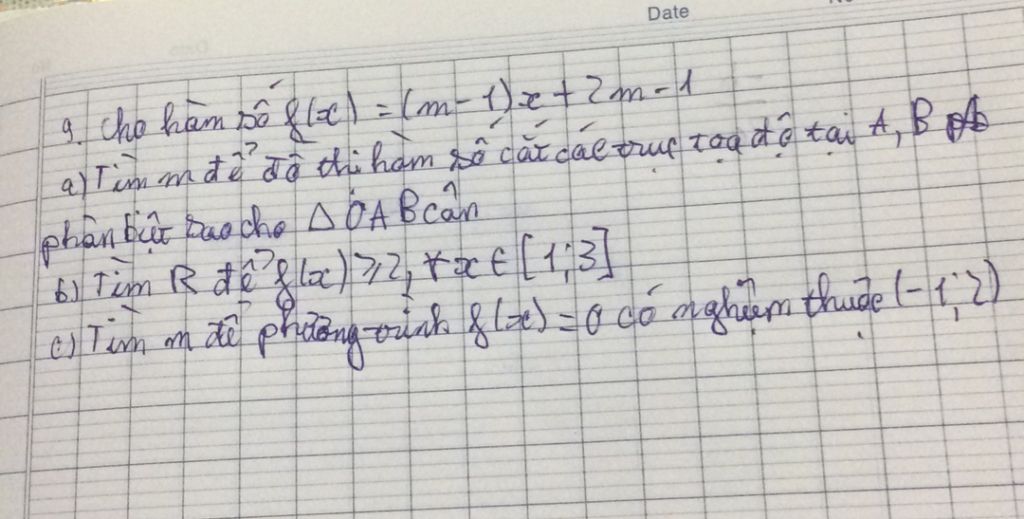 Date
9. Cho hàm số f(x) = (m-1)x + 2m-1
a) Tìm m để đồ thị hàm số cắt các trục toạ độ tại A, B
phân biệt sao cho Δ OAB cân
b) Tìm R để f(x) ⩾ 2, ∀x ∈ [1;3]
c) Tìm m để phương trình f(x) = 0 có nghiệm thuộc (-1;2)